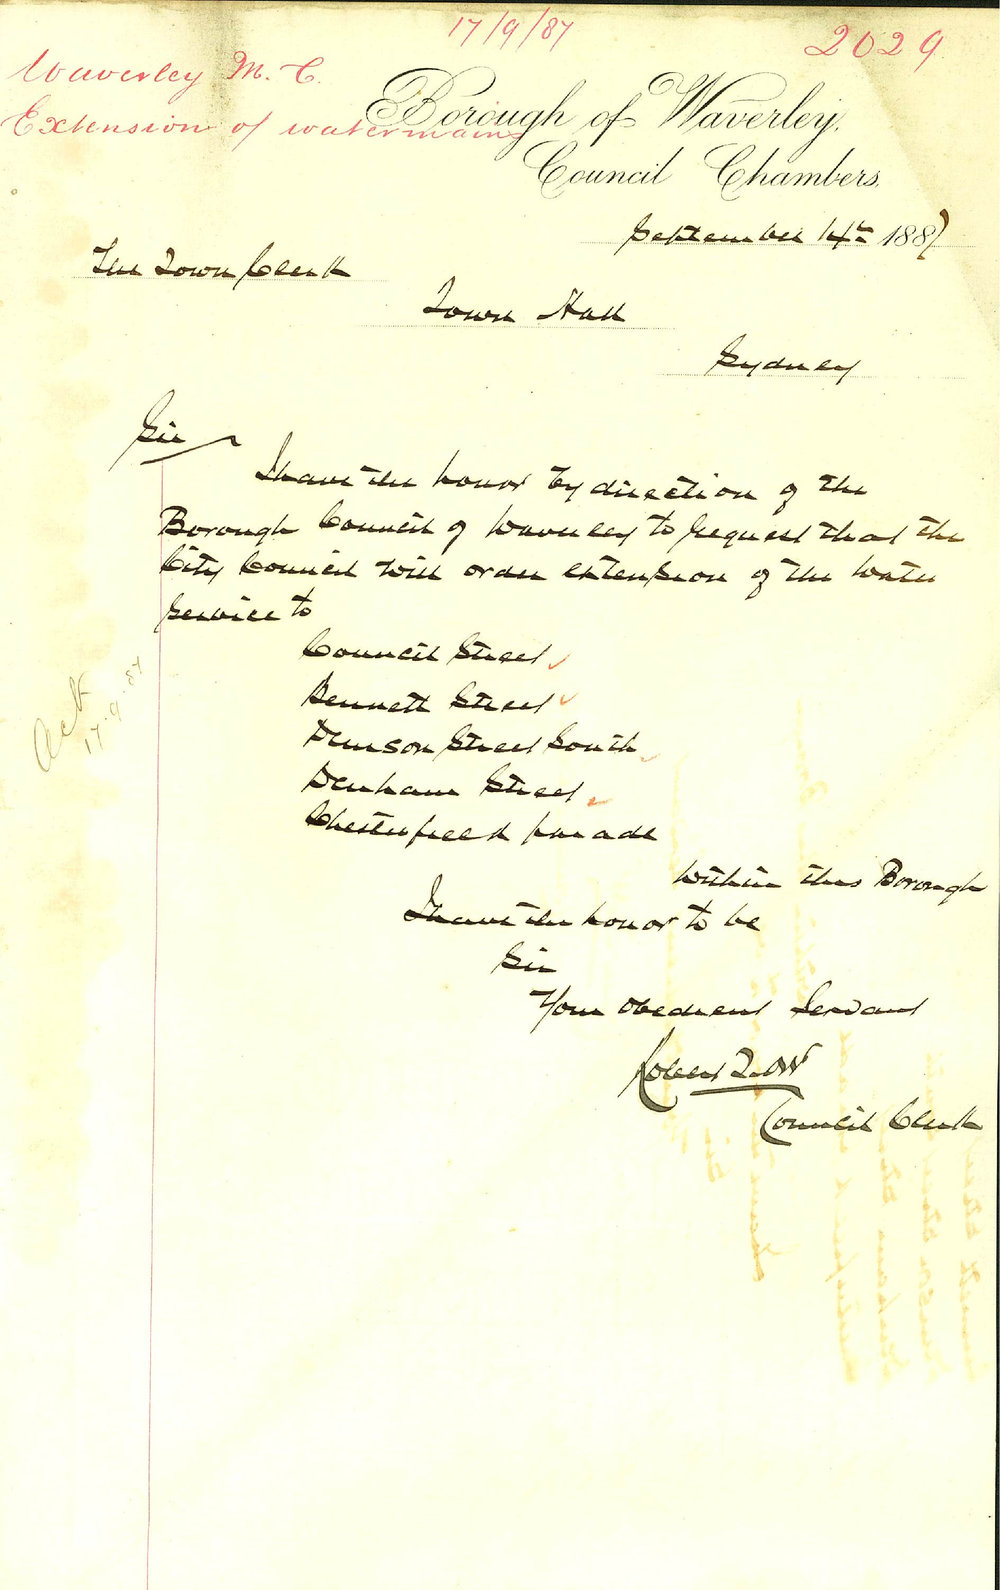 17/9/87
2029
Waverley M. C.
Extension of watermains
Borough of Waverley.
Council Chambers.
September 14th 1887
The Town Clerk
Town Hall
Sydney
Sir
I have the honor by direction of the
Borough Council of Waverley to request that the
City Council will order extension of the water
service to
Council Street
Bennett Street
Denison Street South
Denham Street
Chesterfield parade
within this Borough
I have the honor to be
Sir
Your Obedient Servant
Robert T. Orr
Council Clerk
Ack
17.9.87